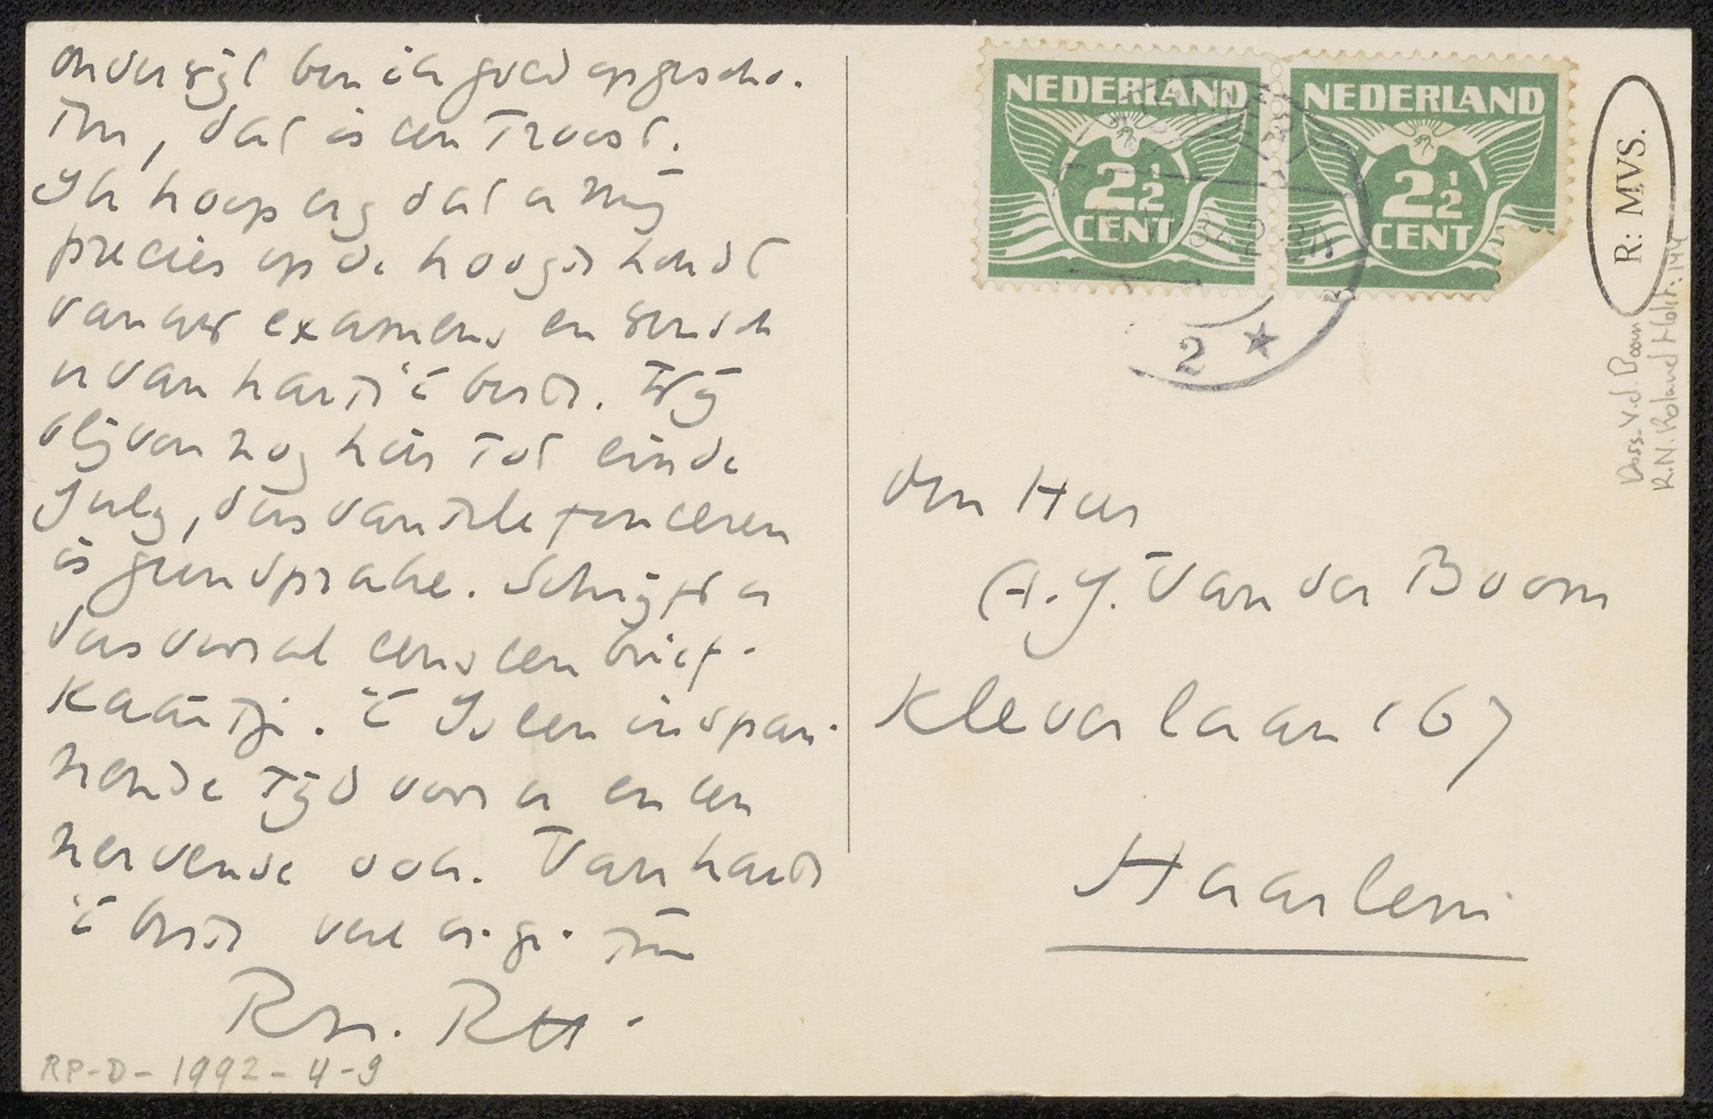 onderwijl ben ik goed opgescho.
ten, dat is een troost.
Ik hoop erg dat u mij
precies op de hoogte houdt
van uw examens en wensch
u van harte 't beste. Wij
blijven nog hier tot einde
July, dus van telefoneeren
is geen sprake. Schrijft u
dus vooral eens een brief-
kaartje. 't Is een inspan-
nende tijd voor u en een
nerveuse ook. Van harte
't beste veel gr. gr. Uw
Rm. RH.
RP-D-1992-4-9
NEDERLAND
2½
CENT
NEDERLAND
2½
CENT
2 ★
R: MVS.
Doss. V.d. Boom
R.N. Roland Holst: 144
den Heer
A.J. van der Boom
Kleverlaan 167
Haarlem